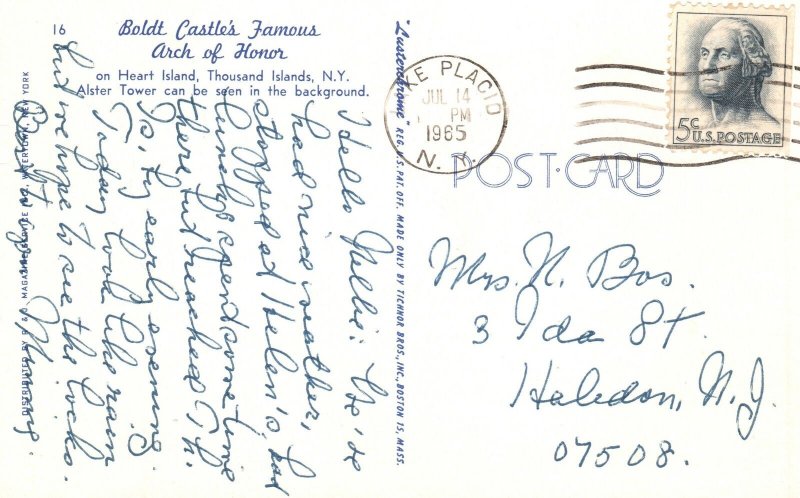 16
Boldt Castle's Famous
Arch of Honor
on Heart Island, Thousand Islands, N.Y.
Alster Tower can be seen in the background.
Hello Nellie: We've
had nice weather,
stopped at Helen's, had
lunch, spent some time
there, but reached Th.
Is, by early evening.
Today looks like rain
but we hope to see the locks.
DISTRIBUTED BY MAGAZINE SERVICE INC. WATERTOWN, NEW YORK
"Lusterchrome" REG. U.S. PAT. OFF. MADE ONLY BY TICHNOR BROS., INC., BOSTON 15, MASS.
LAKE PLACID
JUL 14
PM
1965
N.Y.
5c
U.S. POSTAGE
POST CARD
Mrs. N. Bos.
3 Ida St.
Haledon, N.J.
07508.